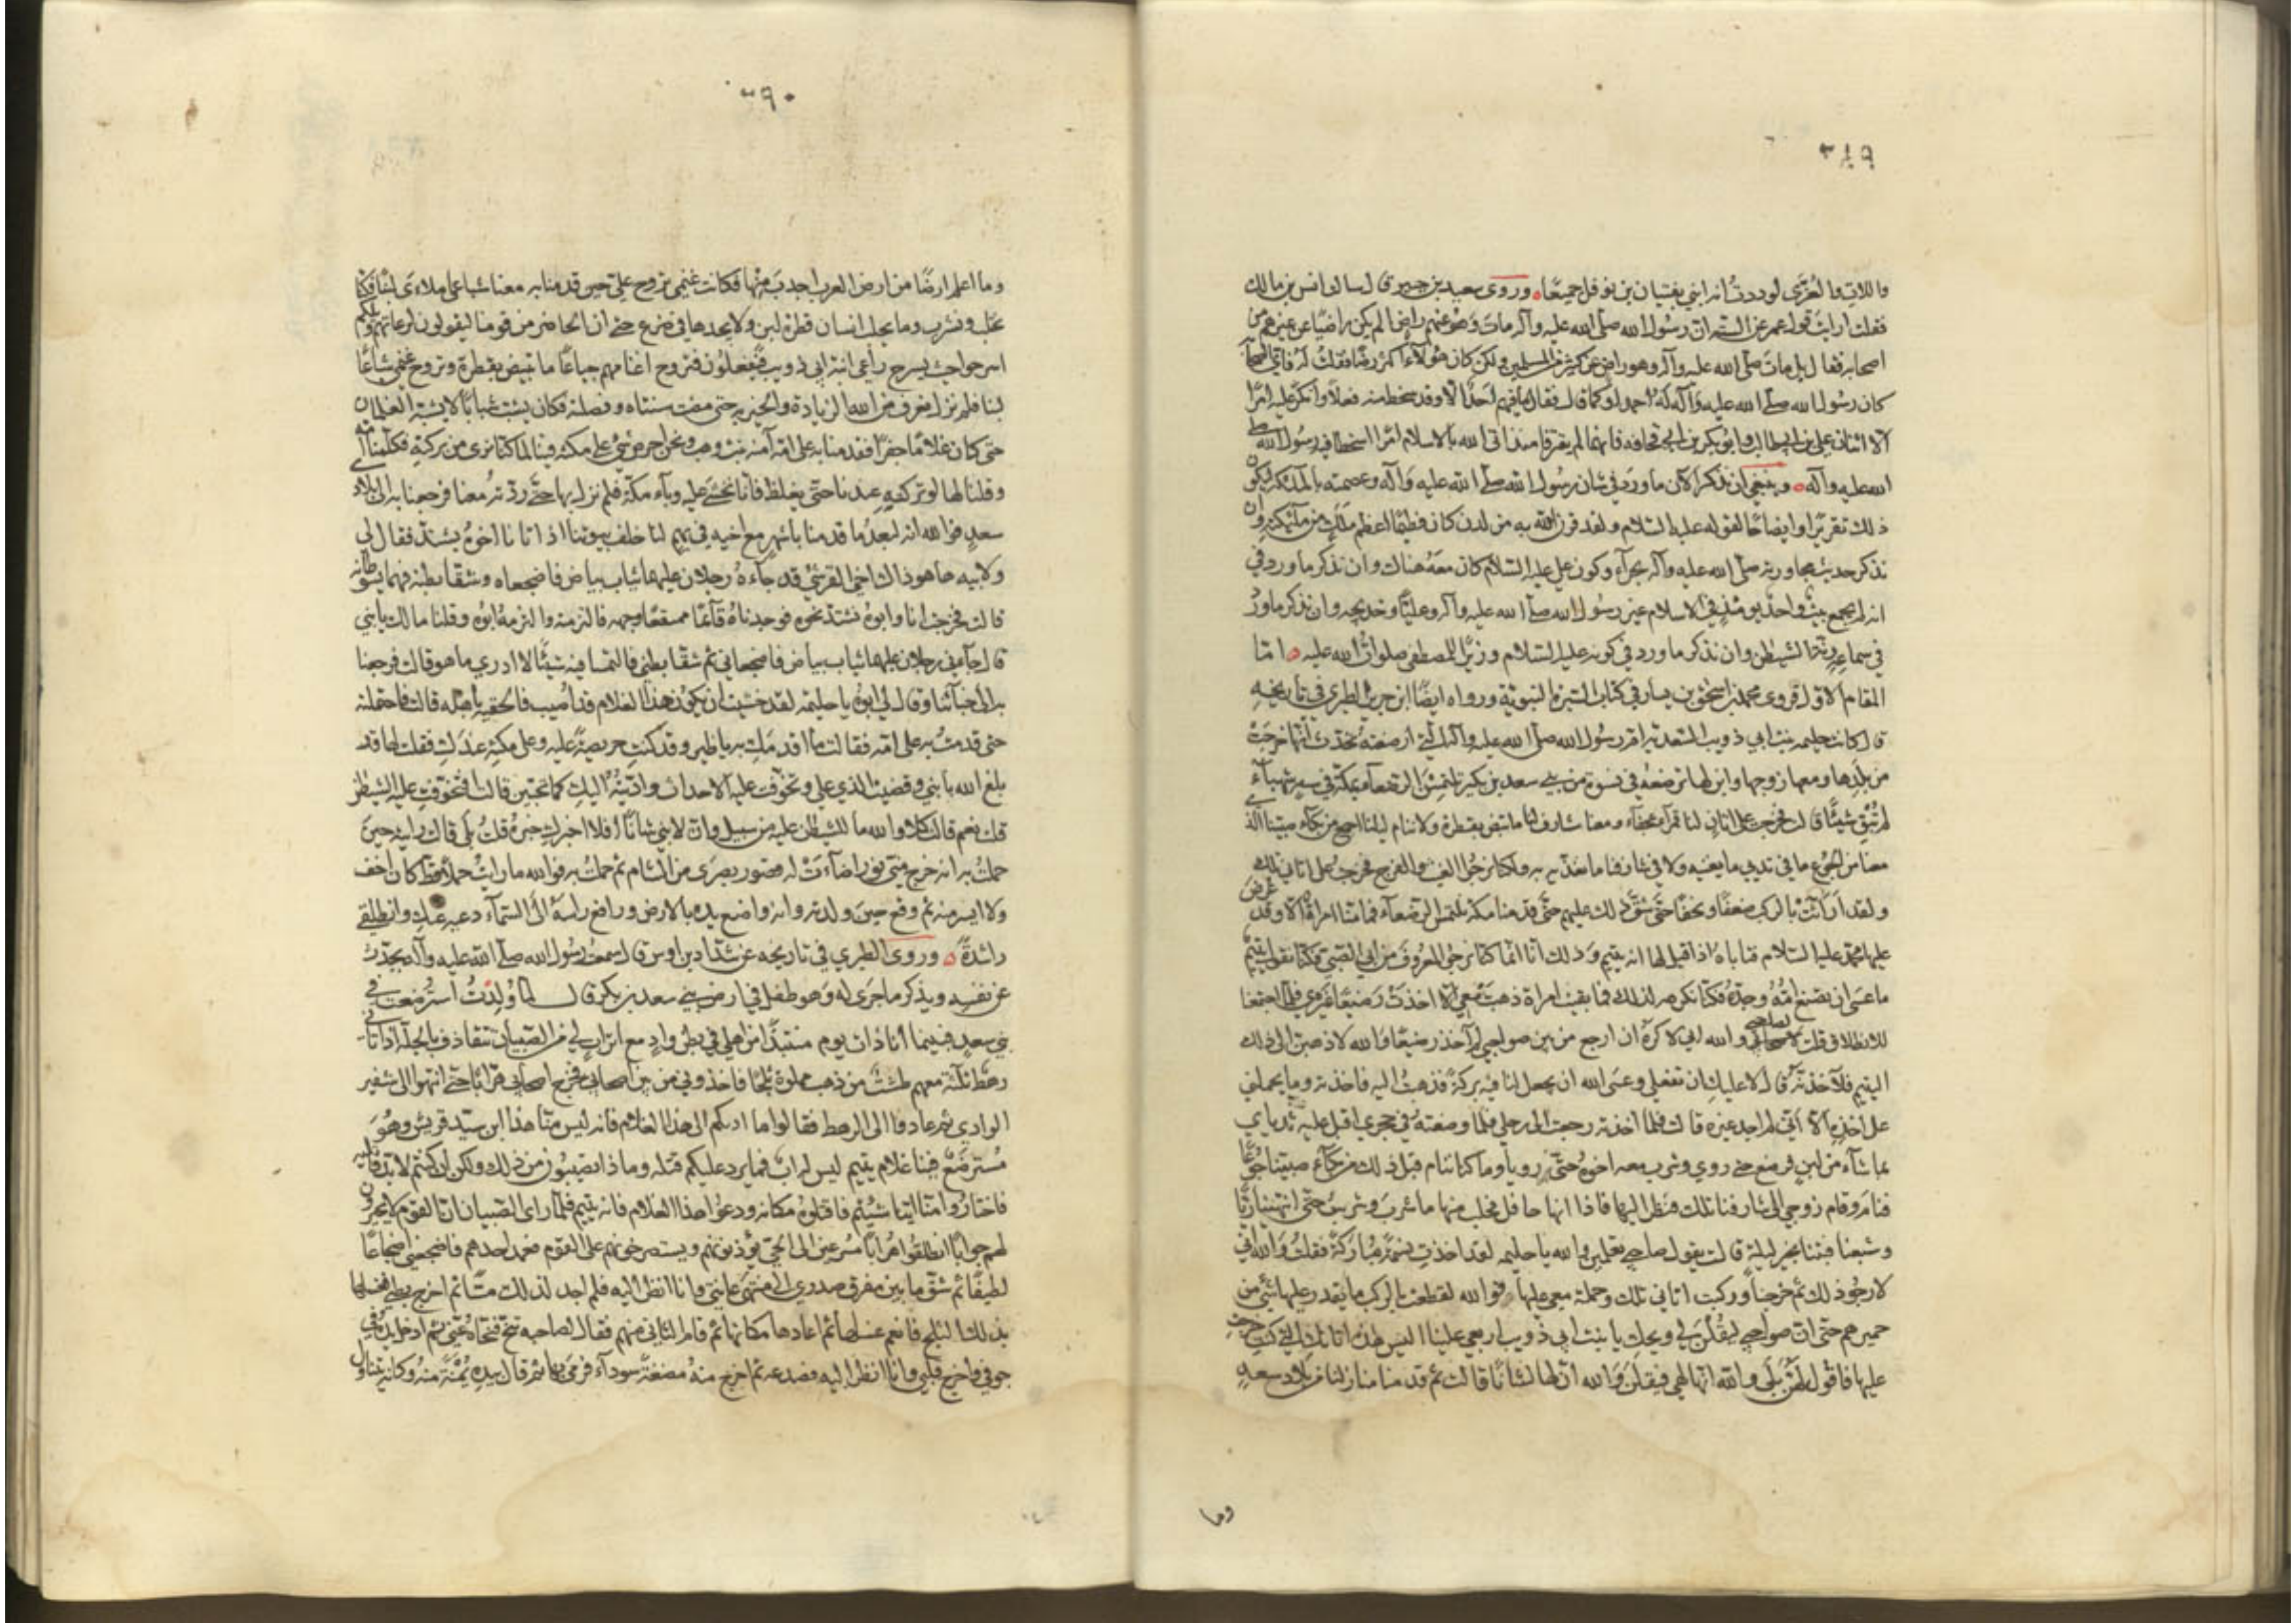 ٣٨٩
واللات والعُزّى لوددتُ انه ابني بفتيان بن نوفل جميعًا وروى سعيد بن جبير قال سالت انس بن مالك
فقلت ارايت قول عمر عن الستة ان رسول الله صلّى الله عليه وآله مات وهو عنهم راضٍ الم يكن راضيًا عن غيرهم من
اصحابه فقال بلى مات صلّى الله عليه وآله وهو راضٍ عن كثير من المسلمين ولكن كان هؤلاء اكثر رضًا فقلت له فاي الصحابة
كان رسول الله صلّى الله عليه وآله له احمد او كما قال فقال ما فيهم احدٌ الّا وقد سخط منه فعلًا وانكر عليه امرًا
الّا اثنان علي بن ابي طالب وابو بكر بن ابي قحافة فانهما لم يقترفا منذ اتى الله بالاسلام امرًا اسخطا فيه رسول الله صلى
الله عليه وآله وينبغي ان نذكر الآن ما ورد في شان رسول الله صلّى الله عليه وآله وعصمته بالملائكة ليكون
ذلك تقريرًا وايضاحًا لقوله عليه السّلام ولقد قرن الله به من لدن كان فطيمًا اعظم ملك من ملئكته وان
نذكر حديث مجاورته صلّى الله عليه وآله بحرآء وكون علي عليه السّلام كان معه هناك وان نذكر ما ورد في
انه لم يجمع بيتٌ واحدٌ يومئذٍ في الاسلام غير رسول الله صلّى الله عليه وآله وعليًّا وخديجه وان نذكر ما ورد
في سماعه رنّة الشيطن وان نذكر ما ورد في كونه عليه السّلام وزيرًا للمصطفى صلوات الله عليه امّا
المقام الاوّل فروى محمد بن اسحق بن يسار في كتاب السّيرة النبوية ورواه ايضًا ابن جرير الطبري في تاريخه
قال كانت حليمه بنت ابي ذويب السّعديّه امّ رسول الله صلّى الله عليه وآله الّتي ارضعته تحدّث انّها خرجَتْ
من بلدِها ومعها زوجها وابن لها ترضعُه في نسوة من بني سعد بن بكر تلتمِسُ الرضعاء بمكّة في سنه شهباء
لم تُبق شيئًا قالت فخرجت على اتانٍ لنا قمراء عجفاء ومعنا شارف لنا ما تبض بقطرة ولا ننام ليلنا اجمع من بكاء صبيّنا الذي
معنا من الجوع ما في ثديي ما يغنيه ولا في شارفنا ما يغذّيه ولكنا نرجُوا الغيث والفرج فخرجتُ على اتاني تلك
ولقد اراثَتْ بالركب ضعفًا وعجفًا حتّى شقّ ذلك عليهم حتّى قدمنا مكة نلتمس الرّضعآء فما منّا امراةٌ الّا وقد عُرِض
عليها محمّد عليه السّلام فتاباهُ اذا قيل لها انه يتيم وذلك انا انّما كنّا نرجُوا المعروفَ من ابي الصّبي فكنّا نقول يتيمٌ
ما عسى ان تصنع امُّهُ وجدّهُ فكنّا نكرهه لذلك فما بقيت امراة ذهبَتْ معي الّا اخذَتْ رضيعًا غيري فلمّا اجتمعنا
للانطلاق قلت لصاحبي والله اني لاكرَهُ ان ارجع من بين صواحبي لم آخذ رضيعًا والله لاذهبنّ الى ذلك
اليتيم فلآخذنّه قال لا عليك ان تفعلي وعسى الله ان يجعل لنا فيه بركةً فذهبتُ اليه فاخذته وما يحملني
على اخذه الّا انّي لم اجد غيره قالت فلمّا اخذته رجعت الى رحلي فلمّا وضعتُهُ في حجري اقبل عليه ثدياي
بما شآء من لبنٍ فرضع حتّى روي وشرب معه اخوهُ حتّى رويا وما كنا ننام قبل ذلك من بكآء صبيّنا جوعًا
فنام وقام زوجي الى شارفنا تلك فنظر اليها فاذا انها حافل فحلب منها ما شرب وشربتُ حتّى انتهينا ريًّا
وشبعنا فبتنا بخير ليلةٍ قالت يقول صاحبي تعلمين والله يا حليمه لقد اخذتِ نسَمَةً مُبارَكةً فقلتُ والله اني
لارجُو ذلك ثم خرجنا وركبت اتاني تلك وحملته معي عليها فوالله لقطعت بالركب ما يقدر عليها شيٌ من
حميرهم حتّى انّ صواحبي ليقُلنَ لي ويحكِ يا بنت ابي ذويب اربعي علينا اليس هذه اتانكِ التي كنتِ خرجتِ
عليها فاقولُ لهنّ بلى والله انّها لهي فيقلن والله انّ لها لشانًا قالت ثم قدمنا منازلنا من بلاد سعدٍ
وما
٣٩٠
وما اعلم ارضًا من ارض العرب اجدبَ منها فكانت غنمي تروح عليّ حين قدمنا به معنا شباعى ملاءى لبنًا فكنّا
نحلب ونشرب وما يحلب انسان قطرة لبنٍ ولا يجدها في ضرع حتى ان الحاضر من قومنا ليقولون لرعاتهم ويلكم
اسرحوا حيث يسرح راعي ابنة ابي ذويب فيفعلون فتروح اغنامهم جياعًا ما تبض بقطرة وتروح غنمي شباعًا
لبنا فلم نزل نعرف من الله الزيادة والخير به حتى مضت سنتاه وفصلته فكان يشبّ شبابًا لا يشبّه الغلمان
حتى كان غلامًا جفرًا فقدمنا به على امّه آمنه بنت وهب ونحن احرص شيءٍ على مكثه فينا لما كنّا نرى من بركتهِ فكلّمنا امّه
وقلنا لها لو تركتيهِ عندنا حتّى يغلظ فانّا نخشى عليه وبآء مكّة فلم نزل بها حتّى ردّتهُ معنا فرجعنا به الى بلاد بني
سعدٍ فوالله انه لبعدَ ما قدمنا باشهرٍ مع اخيه في بهمٍ لنا خلف بيوتنا اذ اتانا اخوهُ يشتدّ فقال لي
ولابيه ها هو ذاك اخي القرشيّ قد جاءهُ رجلان عليهما ثياب بياض فاضجعاه وشقّا بطنه فهما يسوطانه
قالت فخرجتُ انا وابوهُ نشتدّ نحوه فوجدناهُ قآئمًا ممتقعًا وجهه فالتزمته والتزمهُ ابوهُ وقلنا ما لك يا بني
قال جآءني رجلان عليهما ثياب بياض فاضجعاني ثم شقّا بطني فالتمسا فيه شيئًا لا ادري ما هو قالت فرجعنا
به الى خبآئنا وقال لي ابوهُ يا حليمه لقد خشيت ان يكون هذا الغلام قد اُصيب فالحقيه باهله قالت فاحتملته
حتى قدمتُ به على امّه فقالت ما اقدمكِ به يا ظئر وقد كنتِ حريصةً عليه وعلى مكثهِ عندَكِ فقلت لها قد
بلغ الله بابني وقضيت الذي علي وتخوّفت عليه الاحداث وادّيتُهُ اليكِ كما تحبّين قالت افتخوّفتِ عليه الشيطن
قلت نعم قالت كلا والله ما للشيطان عليه من سبيل وانّ لابني شانًا افلا اخبرك خبرَهُ قلتُ بلى قالت رايتُ حينَ
حملتُ به انه خرج منّي نورٌ اضآءَتْ له قصور بصرَى من الشام ثم حملتُ به فوالله ما رايتُ حملًا قط كان اخف
ولا ايسر منه ثم وقع حينَ ولدته وانه واضع يده بالارض ورافع راسَهُ الى السّمآء دعيه عنكِ وانطلقي
راشدةً وروى الطبري في تاريخه عن شدّاد بن اوس قال سمعتُ رسول الله صلّى الله عليه وآله يحدّث
عن نفسِهِ ويذكر ما جرَى له وهو طفل في ارض بني سعد بن بكر قال لمّا وُلدتُ استُرضِعت في
بني سعدٍ فبينما انا ذات يوم منتبذًا من اهلي في بطن وادٍ مع اترابٍ لي من الصّبيان نتقاذف بالجلّة اذ اتاني
رهط ثلثة معهم طشتٌ من ذهب مملوّة ثلجًا فاخذوني من بين اصحابي فخرج اصحابي هرابًا حتّى انتهوا الى شفير
الوادي ثم عادوا الى الرهط فقالوا ما اربكم الى هذا الغلام فانه ليس منّا هذا ابن سيّد قريشٍ وهُوَ
مُسترضَعٌ فينا غلامٌ يتيم ليس له ابٌ فما يرد عليكم قتله وما ذا تصيبُون من ذلك ولكن ان كنتم لا بدّ قاتليه
فاختارُوا منّا ايّنا شئتُم فاقتلوهُ مكانه ودعوا هذا الغلام فانه يتيم فلمّا راى الصّبيان انّ القوم لا يحيرون
لهم جوابًا انطلقُوا هرابًا مسرعين الى الحيّ يؤذنونهم ويستصرخونهم على القوم فعمد احدهم فاضجعني اضجاعًا
لطيفًا ثم شقّ ما بين مفرق صدري الى منتهى عانتي وانا انظر اليه فلم اجد لذلك مسًّا ثم اخرج بطني فغسلها
بذلك الثلج فانعم غسلها ثم اعادها مكانها ثم قام الثاني منهم فقال لصاحبه تنحّ فنحّاهُ عنّي ثم ادخل يده في
جوفي فاخرج قلبي وانا انظر اليه فصدعه ثم اخرج منهُ مضغةً سودآء فرمَى بها ثم قال بيدهِ يُمْنةً منهُ وكانه يتناول